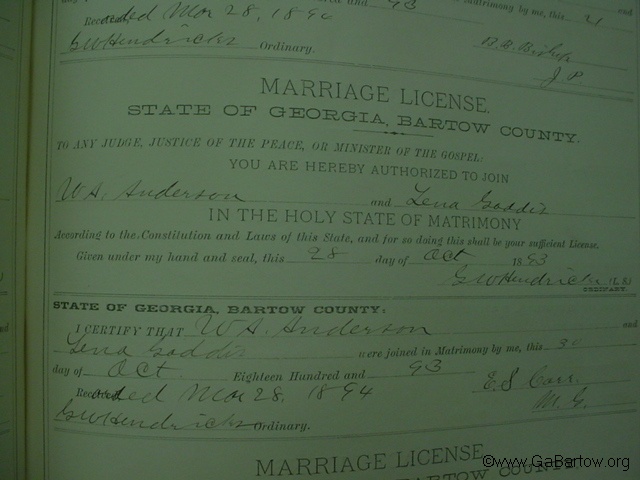 and 93 Matrimony by me, this 21 and
Recorded Mar 28, 1894
GW Hendricks Ordinary. B.B. Bishop
J P.
MARRIAGE LICENSE.
STATE OF GEORGIA, BARTOW COUNTY.
TO ANY JUDGE, JUSTICE OF THE PEACE, OR MINISTER OF THE GOSPEL:
YOU ARE HEREBY AUTHORIZED TO JOIN
W A. Anderson and Lena Gaddis
IN THE HOLY STATE OF MATRIMONY
According to the Constitution and Laws of this State, and for so doing this shall be your sufficient License.
Given under my hand and seal, this 28 day of Oct 1893
GW Hendricks (L.S.)
ORDINARY.
STATE OF GEORGIA, BARTOW COUNTY:
I CERTIFY THAT W A. Anderson and
Lena Gaddis were joined in Matrimony by me, this 30
day of Oct. Eighteen Hundred and 93
E. S Carr.
Recorded Mar 28, 1894 M. G.
GW Hendricks Ordinary.
MARRIAGE LICENSE.
BARTOW COUNTY.
©www.GaBartow.org